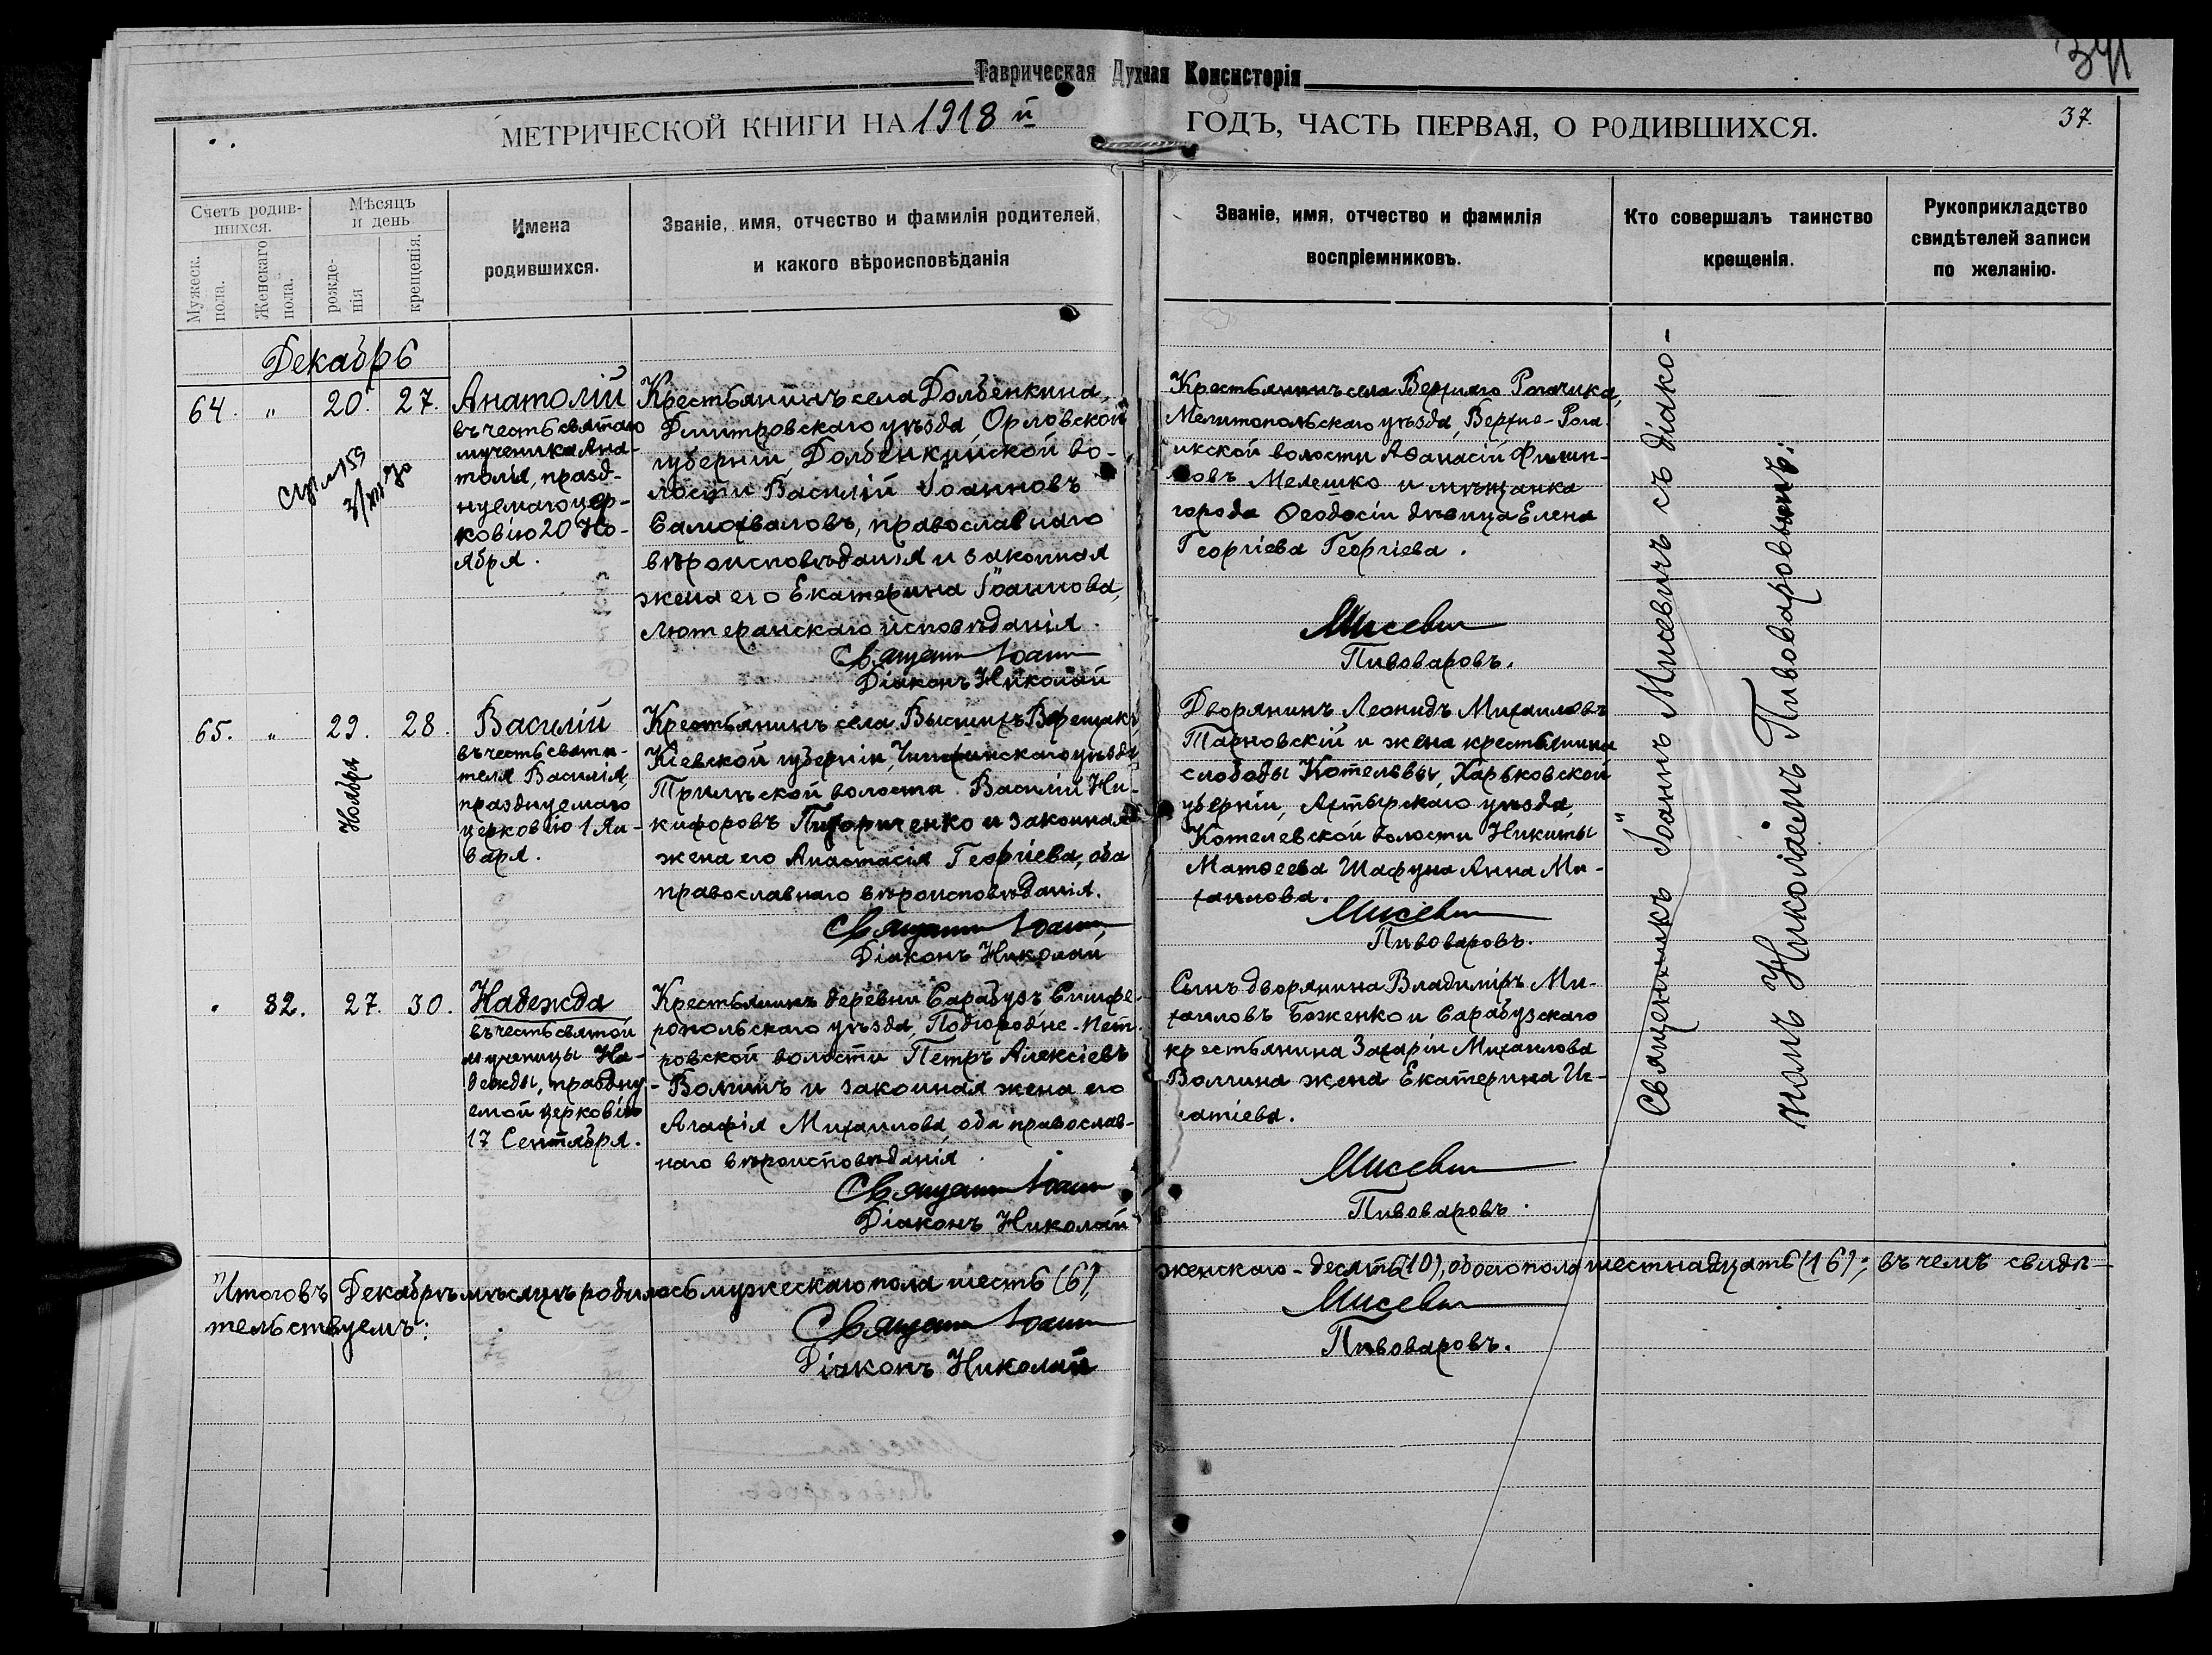 Таврическая Духная Консисторія
37.
МЕТРИЧЕСКОЙ КНИГИ НА 1918 й ГОДЪ, ЧАСТЬ ПЕРВАЯ, О РОДИВШИХСЯ.
Счетъ родив-
шихся.
Мужеск.
пола.
Женскаго
пола.
Мѣсяцъ
и день
рожде-
нія
крещенія.
Имена
родившихся.
Званіе, имя, отчество и фамилія родителей,
и какого вѣроисповѣданія
Званіе, имя, отчество и фамилія
воспріемниковъ.
Кто совершалъ таинство
крещенія.
Рукоприкладство
свидѣтелей записи
по желанію.
Декабрь
64. " 20. 27.
Анатолій
въ честь святаго
мученика Ана-
толія, празд-
нуемаго цер-
ковію 20 Но-
ября.
Крестьянинъ села Долбенкина,
Дмитровскаго уѣзда, Орловской
губерніи, Долбенкинской во-
лости Василій Іоанновъ
Самохваловъ, православнаго
вѣроисповѣданія и законная
жена его Екатерина Іоаннова,
лютеранскаго исповѣданія.
Священ Іоанн
Діаконъ Николай
Крестьянинъ села Верхняго Рогачика,
Мелитопольскаго уѣзда, Верхне-Рога
икской волости Аѳанасій Филип-
повъ Мелешко и мѣщанка
города Ѳеодосіи дѣвица Елена
Георгіева Георгіева.
Мисевич
Пивоваровъ.
65. " 29. 28.
Ноября
Василій
въ честь святи-
теля Василія,
празднуемаго
церковію 1 Ян-
варя.
Крестьянинъ села Высшихъ Верещакъ,
Кіевской губерніи, Чигиринскаго уѣзда,
Трилѣской волости Василій Ни-
кифоровъ и законная
жена его Анастасія Георгіева, оба
православнаго вѣроисповѣданія.
Священ Іоанн
Діаконъ Николай
Дворянинъ Леонидъ Михаиловъ
Тарновскій и жена крестьянина
слободы Котельвы, Харьковской
губерніи, Ахтырскаго уѣзда,
Котелевской волости Никиты
Матѳеева Шафуна Анна Ми-
хаилова.
Мисевич
Пивоваровъ.
" 82. 27. 30.
Надежда
въ честь святой
мученицы На-
дежды, праздну-
емой церковію
17 Сентября.
Крестьянинъ деревни Сарабузъ Симфе-
ропольскаго уѣзда, Подгородне-Пет-
ровской волости Петръ Алексіевъ
Волгинъ и законная жена его
Агафія Михаилова, оба православ-
наго вѣроисповѣданія.
Священ Іоанн
Діаконъ Николай
Сынъ дворянина Владиміръ Ми-
хаиловъ Боженко и Сарабузскаго
крестьянина Захаріи Михаилова
Волгина жена Екатерина Иг-
натіева.
Мисевич
Пивоваровъ.
Священникъ Іоаннъ Мисевичъ съ діако-
номъ Николаемъ Пивоваровымъ.
Итого въ Декабрѣ мѣсяцѣ родилось мужескаго пола шесть (6), женскаго - десять (10), обоего пола шестнадцать (16); въ чемъ свидѣ-
тельствуемъ:
Священ Іоанн Мисевич
Діаконъ Николай Пивоваровъ.